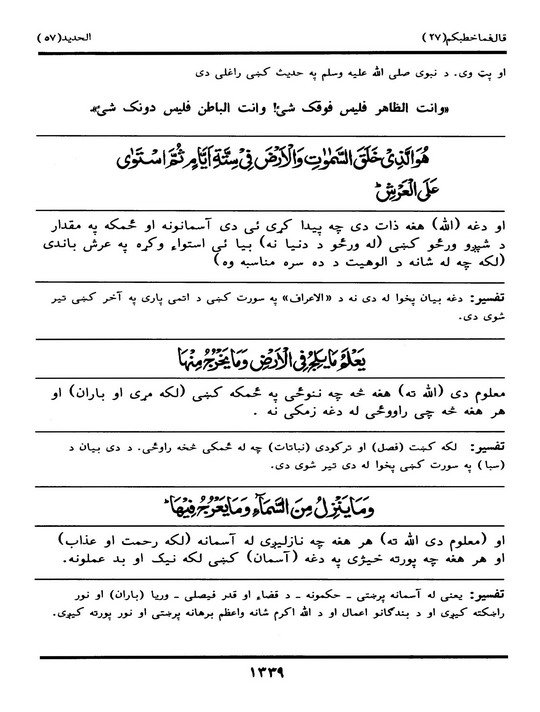 قال فما خطبکم (۲۷)
الحدید (۵۷)
او پټ وی. د نبوی صلی الله علیه وسلم په حدیث کښی راغلی دی
«وانت الظاهر فلیس فوقک شیٔ! وانت الباطن فلیس دونک شیٔ».
هُوَالَّذِیْ خَلَقَ السَّمٰوٰتِ وَالْاَرْضَ فِیْ سِتَّةِ اَیَّامٍ ثُمَّ اسْتَوٰی
عَلَی الْعَرْشِ ؕ
او دغه (الله) هغه ذات دی چه پیدا کړی ئی دی آسمانونه او ځمکه په مقدار
د شپږو ورځو کښی (له ورځو د دنیا نه) بیا ئی استواء وکړه په عرش باندی
(لکه چه له شانه د الوهیت د ده سره مناسبه وه)
تفسیر: دغه بیان پخوا له دی نه د «الاعراف» په سورت کښی د اتمی پاری په آخر کښی تیر
شوی دی.
یَعْلَمُ مَا یَلِجُ فِی الْاَرْضِ وَمَا یَخْرُجُ مِنْهَا
معلوم دی (الله ته) هغه څه چه ننوځی په ځمکه کښی (لکه مړی او باران) او
هر هغه څه چی راووځی له دغه زمکی نه .
تفسیر: لکه کښت (فصل) او ترکودی (نباتات) چه له ځمکی څخه راوځی. د دی بیان د
(سبا) په سورت کښی پخوا له دی تیر شوی دی.
وَمَا یَنْزِلُ مِنَ السَّمَآءِ وَمَا یَعْرُجُ فِیْهَا ؕ
او (معلوم دی الله ته) هر هغه چه نازلیږی له آسمانه (لکه رحمت او عذاب)
او هر هغه چه پورته خیژی په دغه (آسمان) کښی لکه نیک او بد عملونه.
تفسیر: یعنی له آسمانه پرښتی ـ حکمونه ـ د قضاء او قدر فیصلی ـ وریا (باران) او نور
راښکته کیږی او د بندګانو اعمال او د الله اکرم شانه واعظم برهانه پرښتی او نور پورته کیږی.
۱۳۳۹